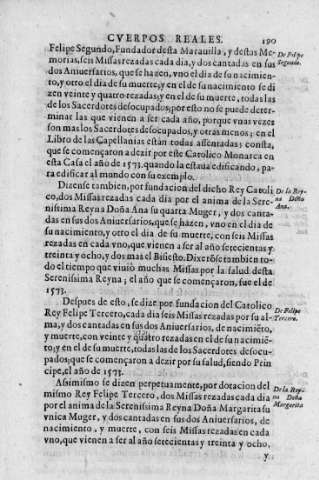 CVERPOS REALES. 190
Felipe Segundo, Fundador desta Marauilla, y destas Me-
De Felipe
Segundo.
morias, seis Missas rezadas cada dia, y dos cantadas en sus
dos Aniuersarios, que se hazen, vno el dia de su nacimien-
to, y otro el dia de su muerte; y en el de su nacimiento se di
zen veinte y quatro rezadas; y en el de su muerte, todas las
de los Sacerdotes desocupados; por esto no se puede deter-
minar las que vienen a ser cada año, porque vnas vezes
son mas los Sacerdotes desocupados, y otras menos; en el
Libro de las Capellanias están todas assentadas; consta,
que se començaron a dezir por este Catolico Monarca en
esta Casa el año de 1573. quando la estaua edificando, pa-
ra edificar al mundo con su exemplo.
Dizense tambien, por fundacion del dicho Rey Catoli
De la Rey-
na Doña
Ana.
co, dos Missas rezadas cada dia por el anima de la Sere-
nissima Reyna Doña Ana su quarta Muger, y dos canta-
das en sus dos Aniuersarios, que se hazen, vno en el dia de
su nacimiento, y otro el dia de su muerte, con seis Missas
rezadas en cada vno, que vienen a ser al año setecientas y
treinta y ocho, y dos mas el Bisiesto. Dixerõse tambien to-
do el tiempo que viuió muchas Missas por la salud desta
Serenissima Reyna; el año que se començaron, fue el de
1573.
Despues de esto, se dize por fundacion del Catolico
De Felipe
Tercero.
Rey Felipe Tercero, cada dia seis Missas rezadas por su al-
ma, y dos cantadas en sus dos Aniuersarios, de nacimiẽto,
y muerte, con veinte y quatro rezadas en el de su nacimiẽ-
to, y en el de su muerte, todas las de los Sacerdotes desocu-
pados; que se començaron a dezir por su salud, siendo Prin
cipe, el año de 1573.
Assimismo se dizen perpetuamente, por dotacion del
De la Rey-
na Doña
Margarita
mismo Rey Felipe Tercero, dos Missas rezadas cada dia
por el anima de la Serenissima Reyna Doña Margarita su
vnica Muger, y dos cantadas en sus dos Aniuersarios, de
nacimiento, y muerte, con seis Missas rezadas en cada
vno, que vienen a ser al año setecientas y treinta y ocho,
y